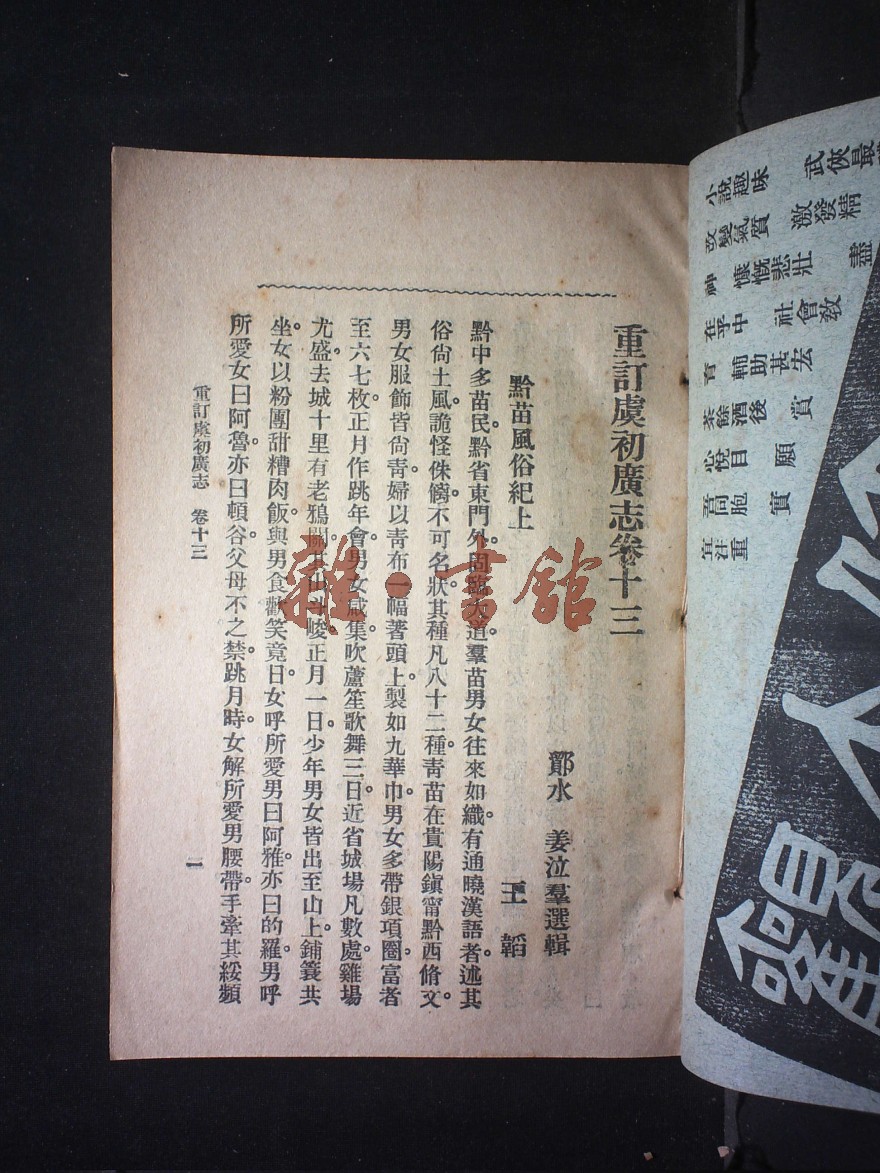 重訂虞初廣志卷十三
鄮水　姜泣羣選輯
黔苗風俗紀上
王　韜
黔中多苗民。黔省東門外。固臨大道。羣苗男女往來如織。有通曉漢語者。述其
俗尙土風。詭怪侏㒧。不可名狀。其種凡八十二種。靑苗在貴陽鎭甯黔西脩文。
男女服飾皆尙靑。婦以靑布一幅著頭上。製如九華巾。男女多帶銀項圈。富者
至六七枚。正月作跳年會。男女咸集。吹蘆笙歌舞三日。近省城場凡數處。雞場
尤盛。去城十里有老鴉關。其山斗峻。正月一日。少年男女皆出至山上。鋪簑共
坐。女以粉團甜糟肉飯。與男食。歡笑竟日。女呼所愛男曰阿雅。亦曰的羅。男呼
所愛女曰阿魯。亦曰頓谷。父母不之禁。跳月時。女解所愛男腰帶。手牽其綏。頻
重訂虞初廣志　卷十三
一
雜·書館
武俠最
小說趣味
激發精
改變氣質
盡
慷慨悲壯
神
社會敎
在乎中
輔助甚宏
育
賞
茶餘酒後
願
心悅目
實
吾同胞
注重